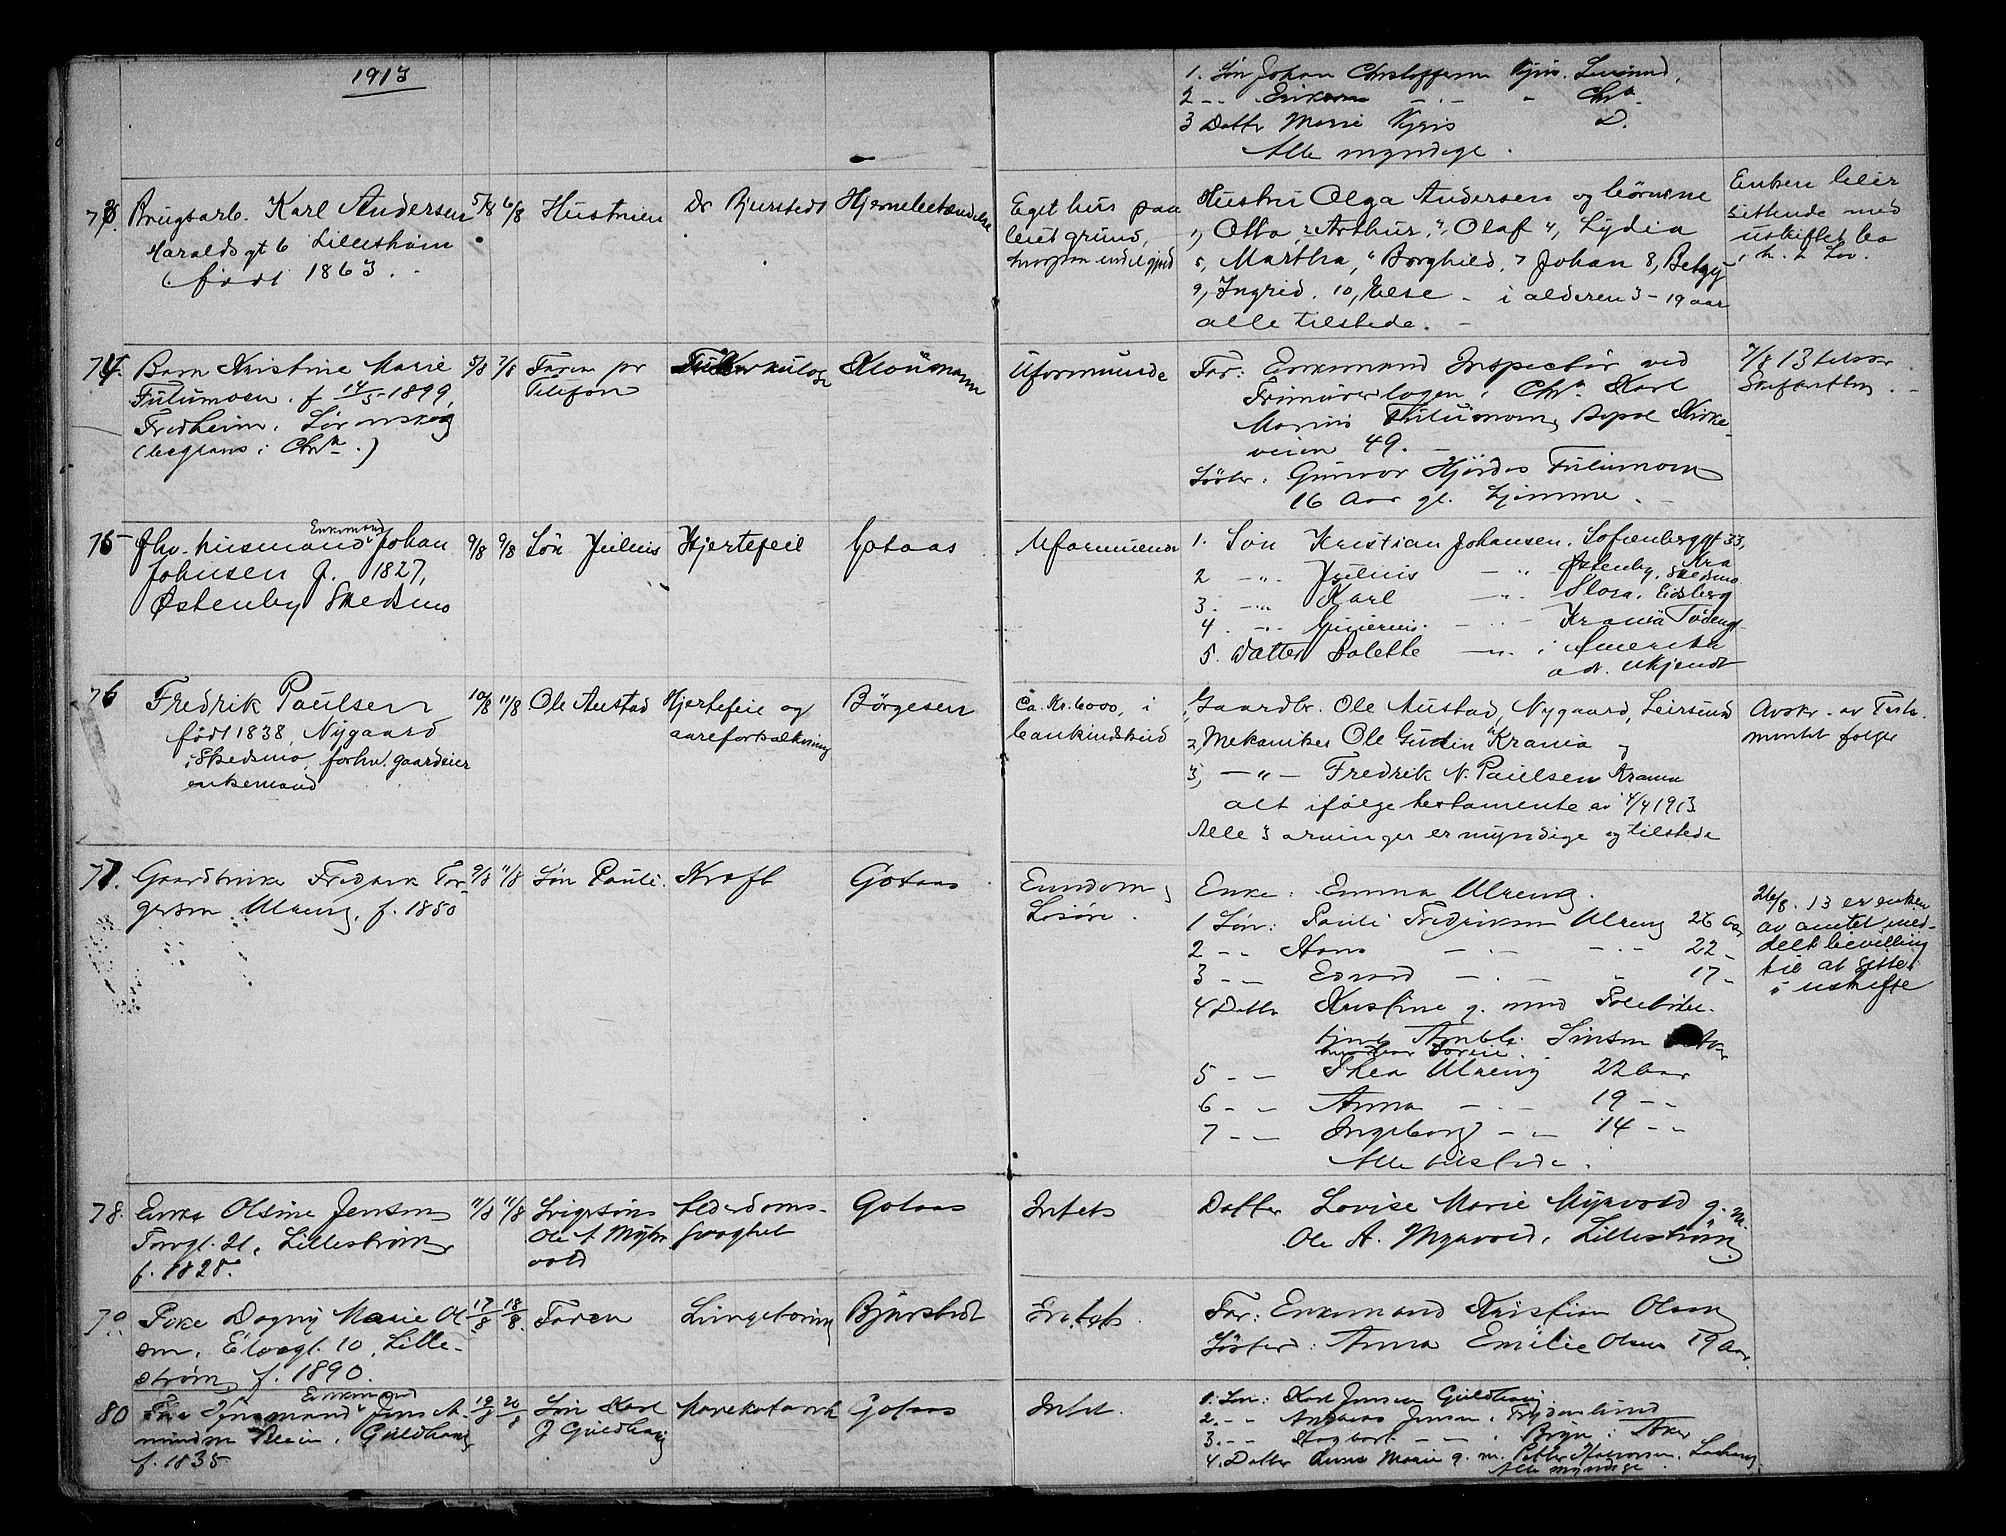 1913
1. Søn Johan Christoffersen
2 -"-
3 Datter Marie
Alle myndige.
73. Brugsarb. Karl Andersen 5/8 6/8 Hustruen Dr Bjurstedt Hjernebetændelse
Haraldsgt 6 Lillestrøm
født 1863.
Eget hus paa
leiet grund,
Hustru Olga Andersen og børnene
1, Otto, 2, Arthur, 3, Olaf 4, Lydia
5, Martha, 6 Borghild, 7 Johan 8, Betzy
9, Ingrid, 10, Else - i alderen 3-19 aar
alle tilstede. -
Enken blir
sittende med
uskiftet bo
i h. t. Lov.
74. Barn Kristine Marie 5/8 7/8 Faren pr Tuberkulose Klousmann
Telefon
f 14/5 1899,
Fredheim, Lørenskog
(begraves i Chra.)
Uformuende
Far: Enkemand Inspectør ved
Frimurerlogen i Chra Karl
Marius Kirke-
veien 49.
Søster: Gunvor Hjørdis
16 Aar gl. hjemme. -
7/8 13
Skifteretten
75 Fhv. husmand Enkemand Johan 9/8 9/8 Søn Julius Hjertefeil Gotaas
Johnsen f. 1827,
Østenby Skedsmo
Uformuende
1. Søn Kristian Johansen, Sofienberggt 33,
Kra
2 -"- Julius -"- Østenby, Skedsmo
3. -"- Karl -"- Eidsberg
4. -"- -"- Krania
5. Datter -"- i Amerika
ad. ukjendt
76 Fredrik Paulsen 10/8 11/8 Ole Austad Hjertefeil og Børgesen
aareforkalkning
født 1838, Nygaard
i Skedsmo, forhv. gaardeier
enkemand
Ca. Kr. 6000, i
bankindskud
1, Gaardbr. Ole Austad, Nygaard, Leirsund
2, Mekaniker Ole Gudin Krania og
3, -"- Fredrik N. Paulsen Krania
alt ifølge testamente av 4/4 1913
Alle 3 arvinger er myndige og tilstede
Avskr. av Testa-
mentet følger
77. Gaardbruker Fredrik Tor- 9/8 11/8 Søn Pauli. Kræft Gotaas
gersen Ulreng, f. 1850
Eiendom og
Løsøre.
Enke: Emma Ulreng.
1 Søn: Pauli Fredriksen Ulreng 26 Aar
2 -"- Hans -"- 22 -
3 -"- Edvard -"- 17 -
4 Datter Kristine g. med
Sinsen Aker
5 -"- Thea Ulreng 22 Aar
6 -"- Anna -"- 19 -"-
7 -"- Ingeborg -"- 14 -"-
Alle tilstede.
26/8. 13 er enken
av amtet med-
delt bevilling
til at sitte
i uskifte
78. Enke Olsine Jensen 11/8 11/8 Svigersøn Alderdoms- Gotaas
Ole A. Myr- svaghet
vold
Torvgt. 21, Lillestrøm
f. 1828.
Intet
Datter Lovise Marie Myrvold g. m.
Ole A. Myrvold, Lillestrøm
79. Pike Dagny Marie Ol- 17/8 18/8. Faren Lungetæring Bjurstedt
sen, Elvegt. 10, Lille-
strøm f. 1890.
Intet.
Far: Enkemand Kristian Olsen
Søster: Anna Emilie Olsen 19 Aar.
80 Husmand Enkemand Jens A- 19/8 20/8 Søn Karl Gotaas
J Guldhaug
mundsen, Guldhaug
f. 1835
Intet.
1. Søn: Karl Jensen Guldhaug
2. -"- Andreas Jensen, Frydenlund
3. -"- -"- Bryn i Aker
4. Datter Anna Marie g. m. Petter
Alle myndige.